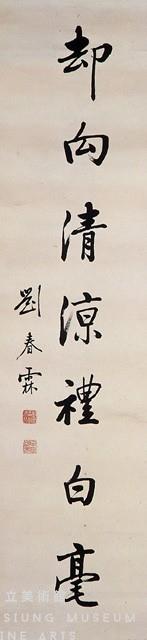 却向清涼禮白毫
劉春霖
立美術館
SIUNG MUSEUM
INE ARTS